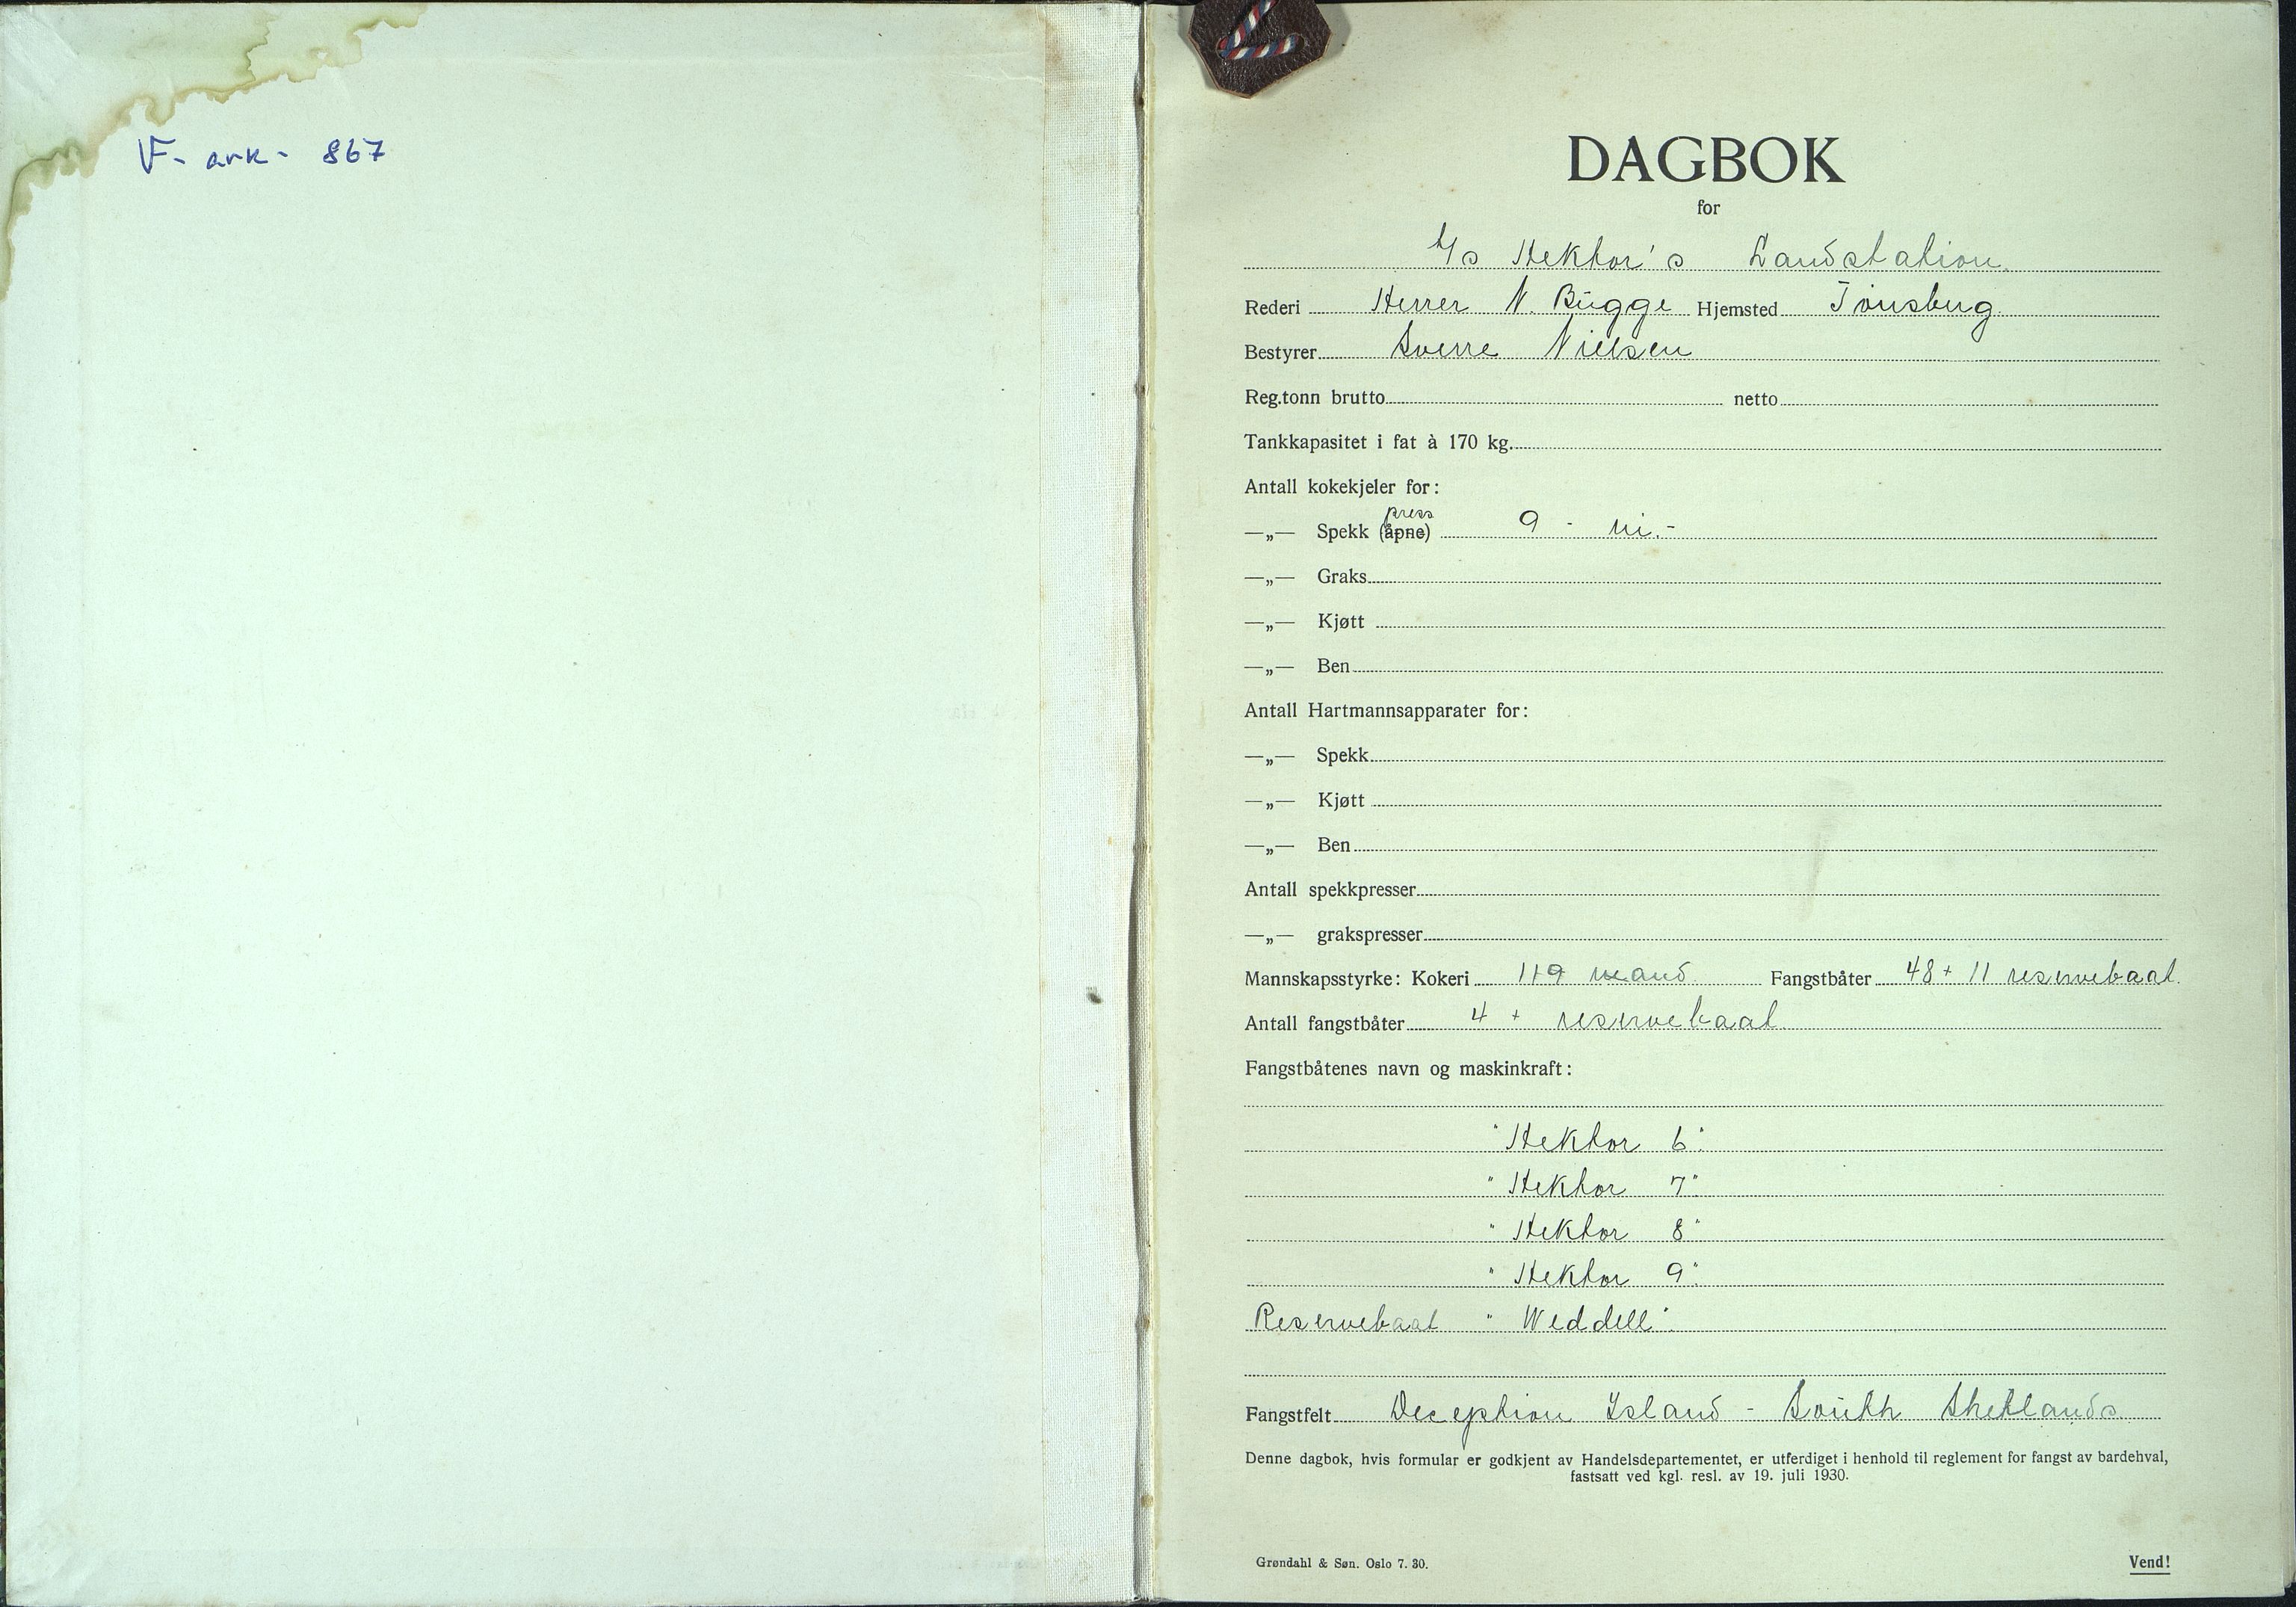 F- ark- 867
DAGBOK
for
A/s Hektor's Landstation.
Rederi Herrer N. Bugge Hjemsted Tönsberg.
Bestyrer Sverre Nielsen
Reg.tonn brutto netto
Tankkapasitet i fat à 170 kg.
Antall kokekjeler for:
press
—„— Spekk (åpne) 9 - ni.-
—„— Graks
—„— Kjøtt
—„— Ben
Antall Hartmannsapparater for:
—„— Spekk
—„— Kjøtt
—„— Ben
Antall spekkpresser
—„— grakspresser
Mannskapsstyrke: Kokeri 119 mand Fangstbåter 48 + 11 reservebaat.
Antall fangstbåter 4 + reservebaat
Fangstbåtenes navn og maskinkraft:
"Hektor 6".
"Hektor 7".
"Hektor 8"
"Hektor 9".
Reservebaat "Weddell".
Fangstfelt Deception Island - South Shetlands
Denne dagbok, hvis formular er godkjent av Handelsdepartementet, er utferdiget i henhold til reglement for fangst av bardehval,
fastsatt ved kgl. resl. av 19. juli 1930.
Grøndahl & Søn. Oslo 7. 30. Vend!